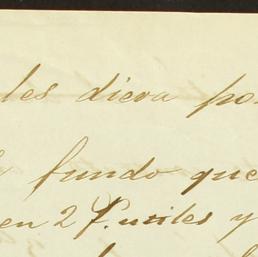 les diera po
fundo que
en 2 f. utiles y